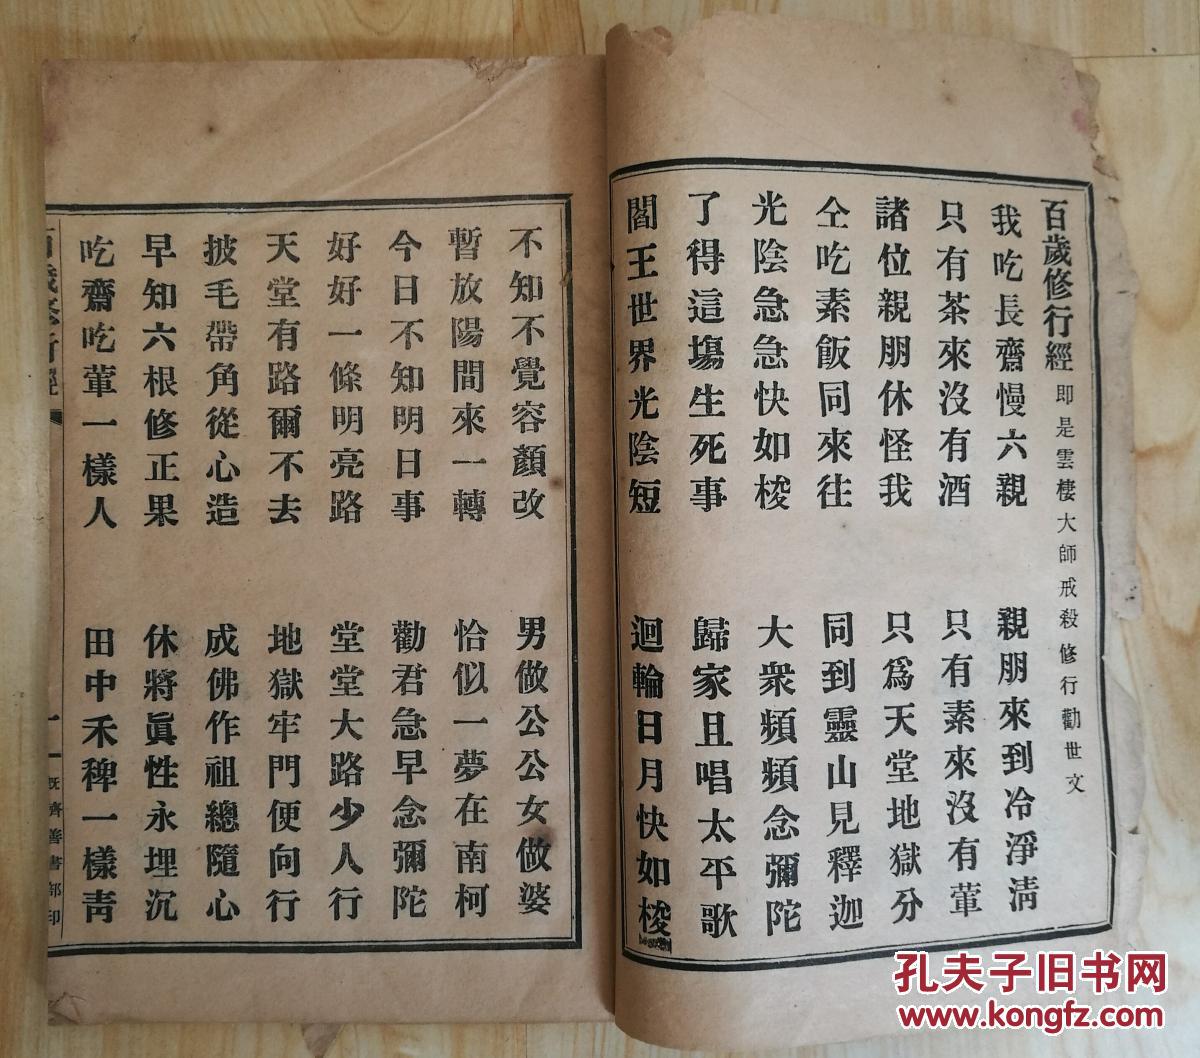 百歲修行經 即是雲棲大師戒殺修行勸世文
我吃長齋慢六親 親朋來到冷淨淸
只有茶來沒有酒 只有素來沒有葷
諸位親朋休怪我 只爲天堂地獄分
仝吃素飯同來往 同到靈山見釋迦
光陰急急快如梭 大衆頻頻念彌陀
了得這塲生死事 歸家且唱太平歌
閻王世界光陰短 迴輪日月快如梭
不知不覺容顏改 男做公公女做婆
暫放陽間來一轉 恰似一夢在南柯
今日不知明日事 勸君急早念彌陀
好好一條明亮路 堂堂大路少人行
天堂有路爾不去 地獄牢門便向行
披毛帶角從心造 成佛作祖總隨心
早知六根修正果 休將眞性永埋沉
吃齋吃葷一樣人 田中禾稗一樣靑
百歲修行經 十一 既濟善書部印
孔夫子旧书网
www.kongfz.com